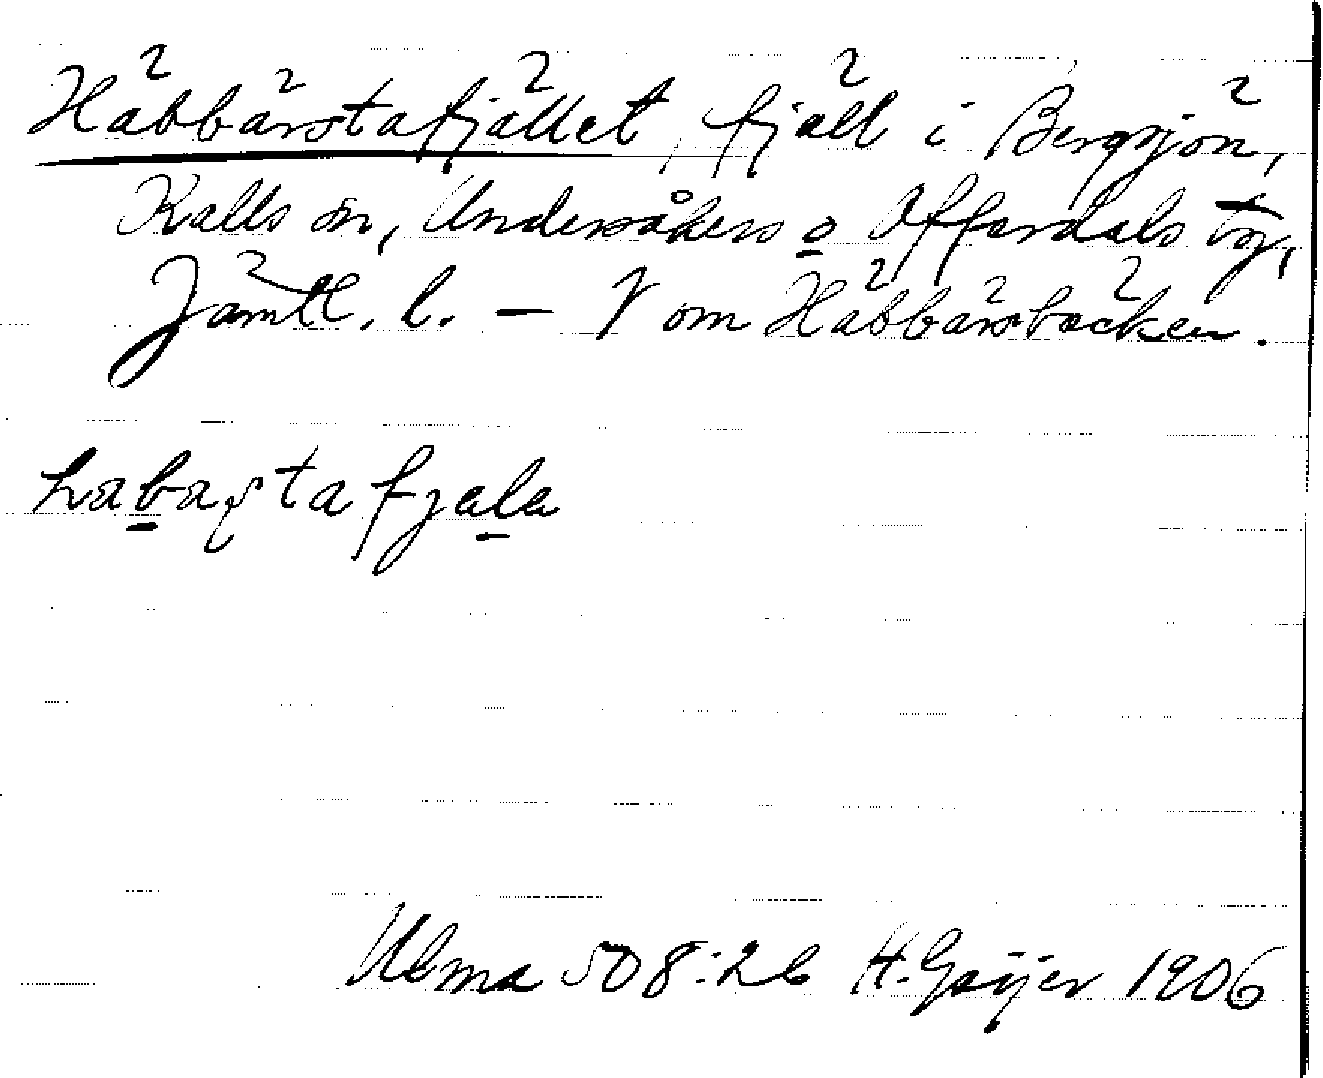 Häbbärstafjället, fjäll i Bergsjön,
Kalls sn, Undersåkers o Offerdals tg,
Jämtl. l. – V om Häbbärsbäcken.
habaʂtafjalа
Ulma 508:26 H. Geijer 1906